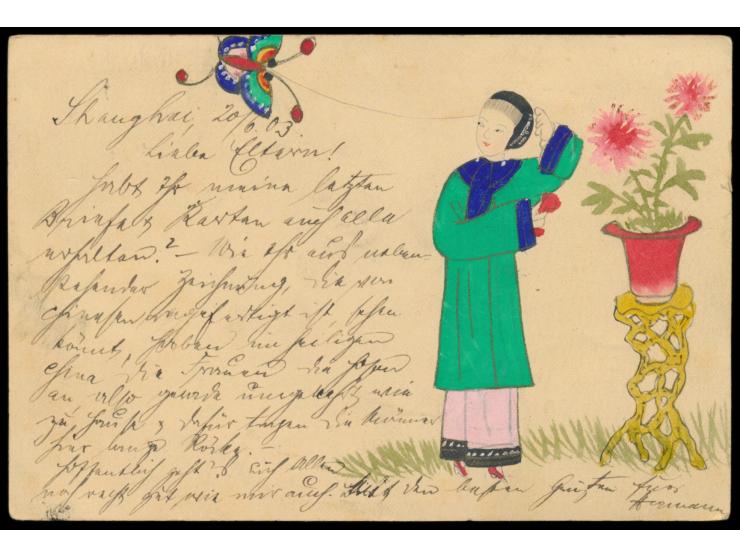 Shanghai, 20/6.03
Liebe Eltern!
Habt Ihr meine letzten
Briefe & Karten auch alle
erhalten? – Wie Ihr aus neben-
stehender Zeichnung, die von
Chinesen angefertigt ist, sehen
könnt, haben im heiligen
China die Frauen die Hosen
an also gerade umgekehrt wie
zu Hause & dafür tragen die Männer
hier lange Röcke. –
Hoffentlich geht's Euch allen
noch recht gut wie mir auch. Mit den besten Grüßen Euer
Hermann